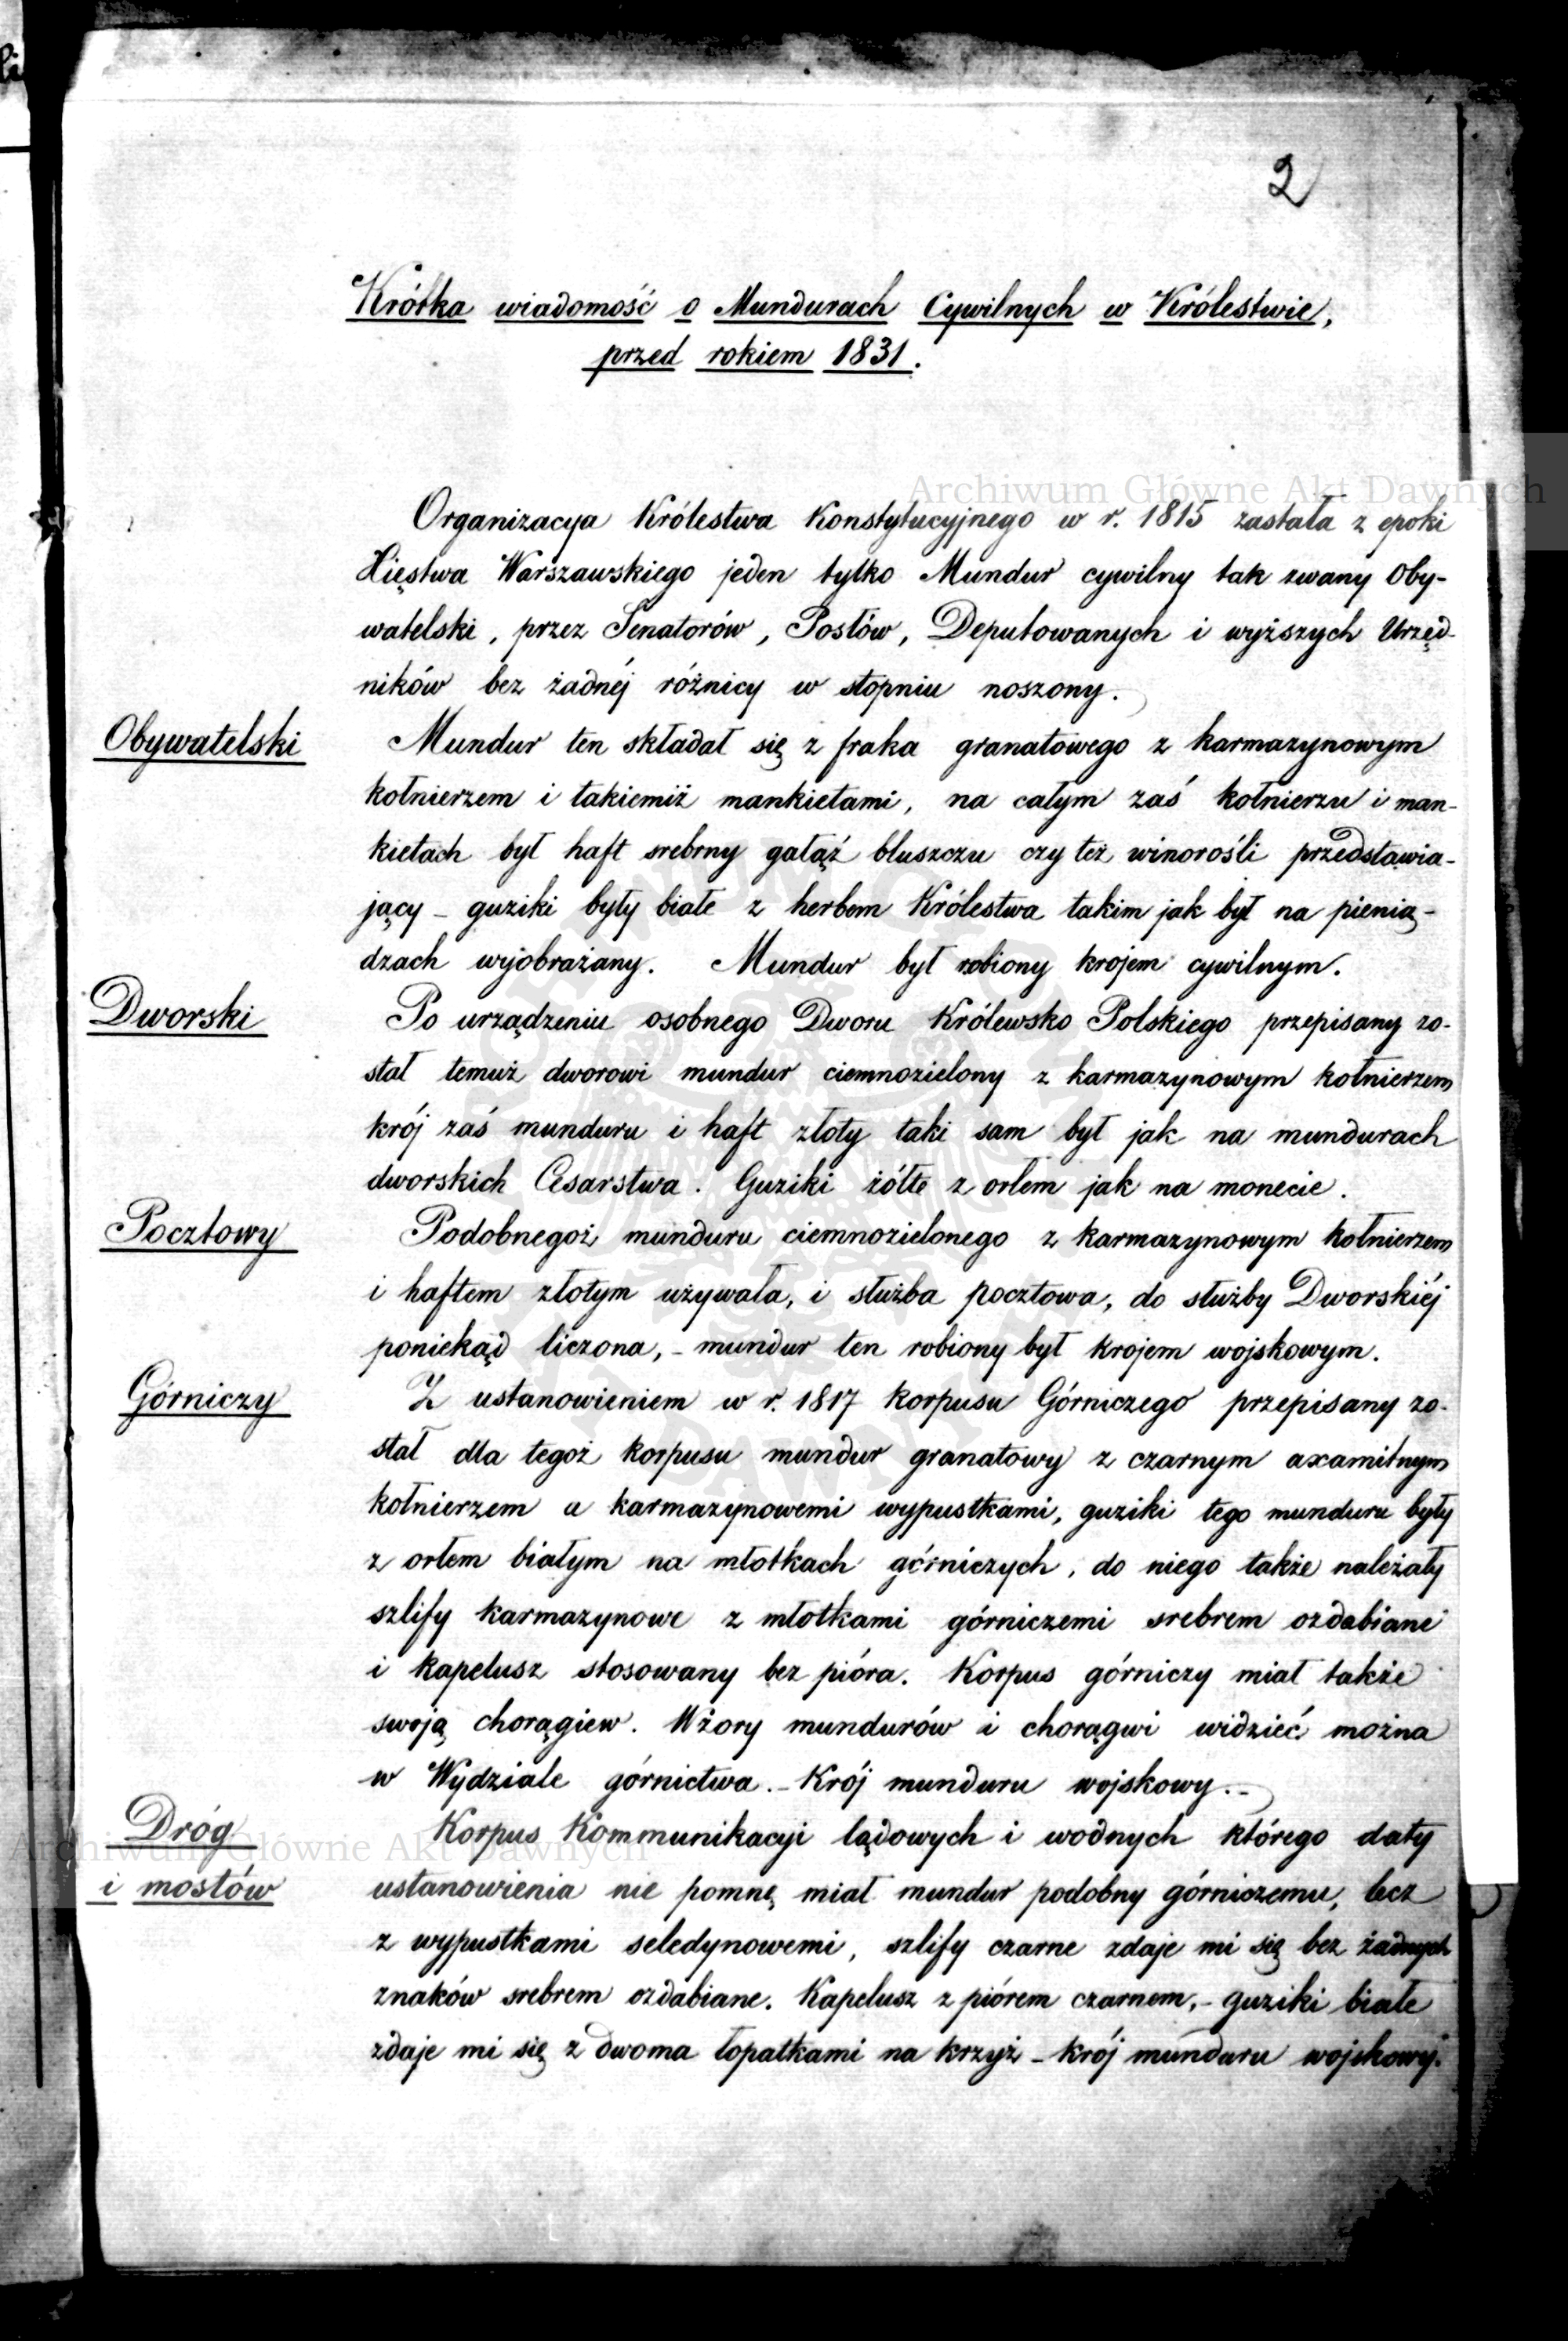 2
Krótka wiadomość o Mundurach Cywilnych w Królestwie,
przed rokiem 1831.
Archiwum Główne Akt Dawnych
Organizacya Królestwa Konstytucyjnego w r. 1815 zastała z epoki
Xięstwa Warszawskiego jeden tylko Mundur cywilny tak zwany Oby-
watelski, przez Senatorów, Posłów, Deputowanych i wyższych Urzęd-
ników bez żadnéj różnicy w stopniu noszony.
Obywatelski
Mundur ten składał się z fraka granatowego z karmazynowym
kołnierzem i takiemiż mankietami, na całym zaś kołnierzu i man-
kietach był haft srebrny gałąź bluszczu czy też winorośli przedstawia-
jący – guziki były białe z herbem Królestwa takim jak był na pienią-
dzach wyobrażany. Mundur był robiony krojem cywilnym.
Dworski
Po urządzeniu osobnego Dworu Królewsko Polskiego przepisany zo-
stał temuż dworowi mundur ciemnozielony z karmazynowym kołnierzem
krój zaś munduru i haft złoty taki sam był jak na mundurach
dworskich Cesarstwa. Guziki żółte z orłem jak na monecie.
Pocztowy
Podobnegoż munduru ciemnozielonego z karmazynowym kołnierzem
i haftem złotym używała, i służba pocztowa, do służby Dworskiéj
poniekąd liczona, – mundur ten robiony był krojem wojskowym.
Górniczy
Z ustanowieniem w r. 1817 korpusu Górniczego przepisany zo-
stał dla tegoż korpusu mundur granatowy z czarnym axamitnym
kołnierzem a karmazynowemi wypustkami, guziki tego munduru były
z orłem białym na młotkach górniczych, do niego także należały
szlify karmazynowe z młotkami górniczemi srebrem ozdabiane
i kapelusz stosowany bez pióra. Korpus górniczy miał także
swoją chorągiew. Wzory mundurów i chorągwi widzieć można
w Wydziale górnictwa. – Krój munduru wojskowy. –
Dróg
i mostów
Archiwum Główne Akt Dawnych
Korpus Kommunikacyi lądowych i wodnych którego daty
ustanowienia nie pomnę miał mundur podobny górniczemu, lecz
z wypustkami seledynowemi, szlify czarne zdaje mi się bez żadnych
znaków srebrem ozdabiane. Kapelusz z piórem czarnem, – guziki białe
zdaje mi się z dwoma łopatkami na krzyż – krój munduru wojskowy.